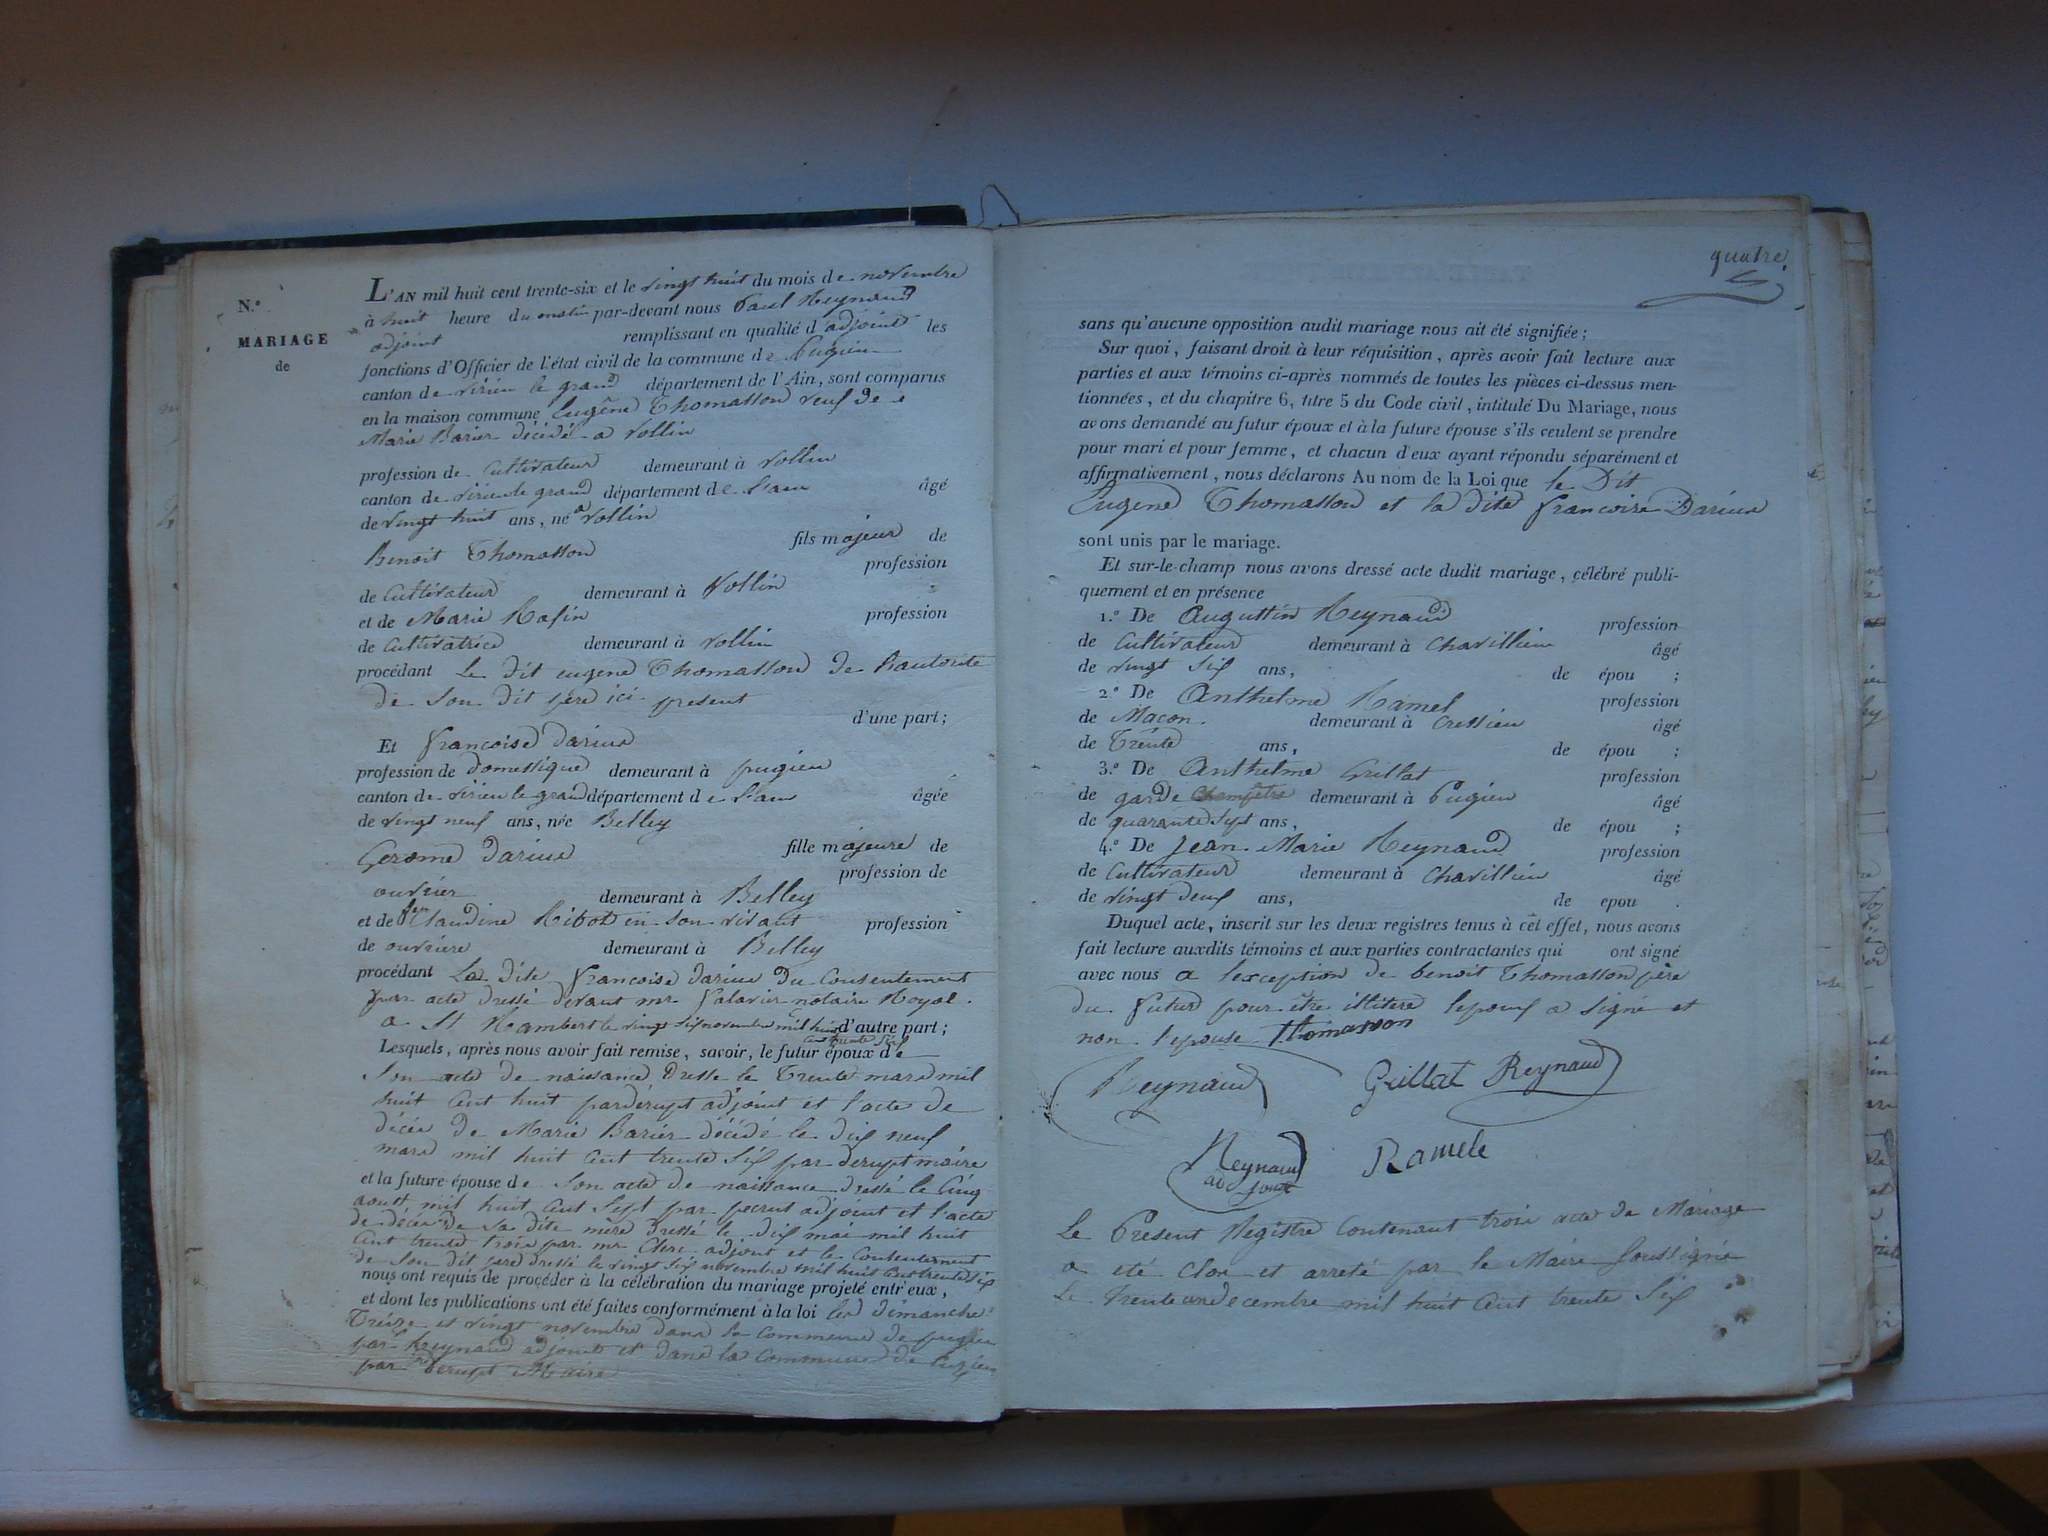 N.º
MARIAGE
de
L'AN mil huit cent trente-six et le vingt huit du mois de novembre
à huit heure du matin par-devant nous Paul Reynaud
adjoint remplissant en qualité d'adjoint les
fonctions d'Officier de l'état civil de la commune de Pugieu
canton de virieu le grand département de l'Ain, sont comparus
en la maison commune Eugène Thomasson veuf de
Marie Barier décédé a vollin
profession de Cultivateur demeurant à vollin
canton de virieu le grand département de l'ain âgé
de vingt huit ans, né a vollin
fils majeur de
Benoit Thomasson profession
de Cultivateur demeurant à Vollin
et de Marie profession
de Cultivatrice demeurant à vollin
procédant Le dit eugene Thomasson de l'autorité
de son dit père ici present
d'une part;
Et françoise darius
profession de domestique demeurant à pugieu
canton de virieu le grand département de l'ain âgée
de vingt neuf ans, née Belley
fille majeure de
Gerome darius profession de
ouvrier demeurant à Belley
et de feu Claudine Ribot en son vivant profession
de ouvriere demeurant à Belley
procédant La dite françoise darius du Consentement
par acte dressé devant mr. notaire Royal.
a St Rambert le vingt six novembre mil huit d'autre part;
cent trente six
Lesquels, après nous avoir fait remise, savoir, le futur époux de
Son acte de naissance dressé le Trente mars mil
huit cent huit par derupt adjoint et l'acte de
décès de Marie Barier décédé le dix neuf
mars mil huit cent trente six par derupt maire
et la future épouse de son acte de naissance dressé le Cinq
aoust mil huit cent sept par adjoint et l'acte
de décès de sa dite mère dressé le dix mai mil huit
cent trente trois par mr. Clerc adjoint et le Consentement
de son dit pere dressé le vingt six novembre mil huit cent trente six
nous ont requis de procéder à la célébration du mariage projeté entr'eux,
et dont les publications ont été faites conformément à la loi les dimanche
Treize et vingt novembre dans la Commune de pugieu
par Reynaud adjoint et dans la Commune de Cuzieu
par derupt Maire
quatre
sans qu'aucune opposition audit mariage nous ait été signifiée;
Sur quoi, faisant droit à leur réquisition, après avoir fait lecture aux
parties et aux témoins ci-après nommés de toutes les pièces ci-dessus men-
tionnées, et du chapitre 6, titre 5 du Code civil, intitulé Du Mariage, nous
avons demandé au futur époux et à la future épouse s'ils veulent se prendre
pour mari et pour femme, et chacun d'eux ayant répondu séparément et
affirmativement, nous déclarons Au nom de la Loi que le Dit
Eugene Thomasson et la dite françoise Darius
sont unis par le mariage.
Et sur-le-champ nous avons dressé acte dudit mariage, célébré publi-
quement et en présence
1.º De Augustin Reynaud profession
de Cultivateur demeurant à Chavillieu âgé
de vingt six ans, de épou ;
2.º De Anthelme Ramel profession
de Maçon. demeurant à Cressieu âgé
de Trente ans, de épou ;
3.º De Anthelme Grillat profession
de garde Champêtre demeurant à Pugieu âgé
de quarante sept ans, de épou ;
4.º De Jean-Marie Reynaud profession
de Cultivateur demeurant à Chavillieu âgé
de vingt deux ans, de epou .
Duquel acte, inscrit sur les deux registres tenus à cet effet, nous avons
fait lecture auxdits témoins et aux parties contractantes qui ont signé
avec nous a l'exception de benoit Thomasson père
du futur pour être illitere lepoux a signé et
non l'epouse Thomasson
Reynaud Grillat Reynaud
Reynaud Ramele
adjoint
Le Présent Registre Contenant trois acte de Mariage
a été Clos et arreté par le Maire Soussigné
Le trente un decembre mil huit cent trente six